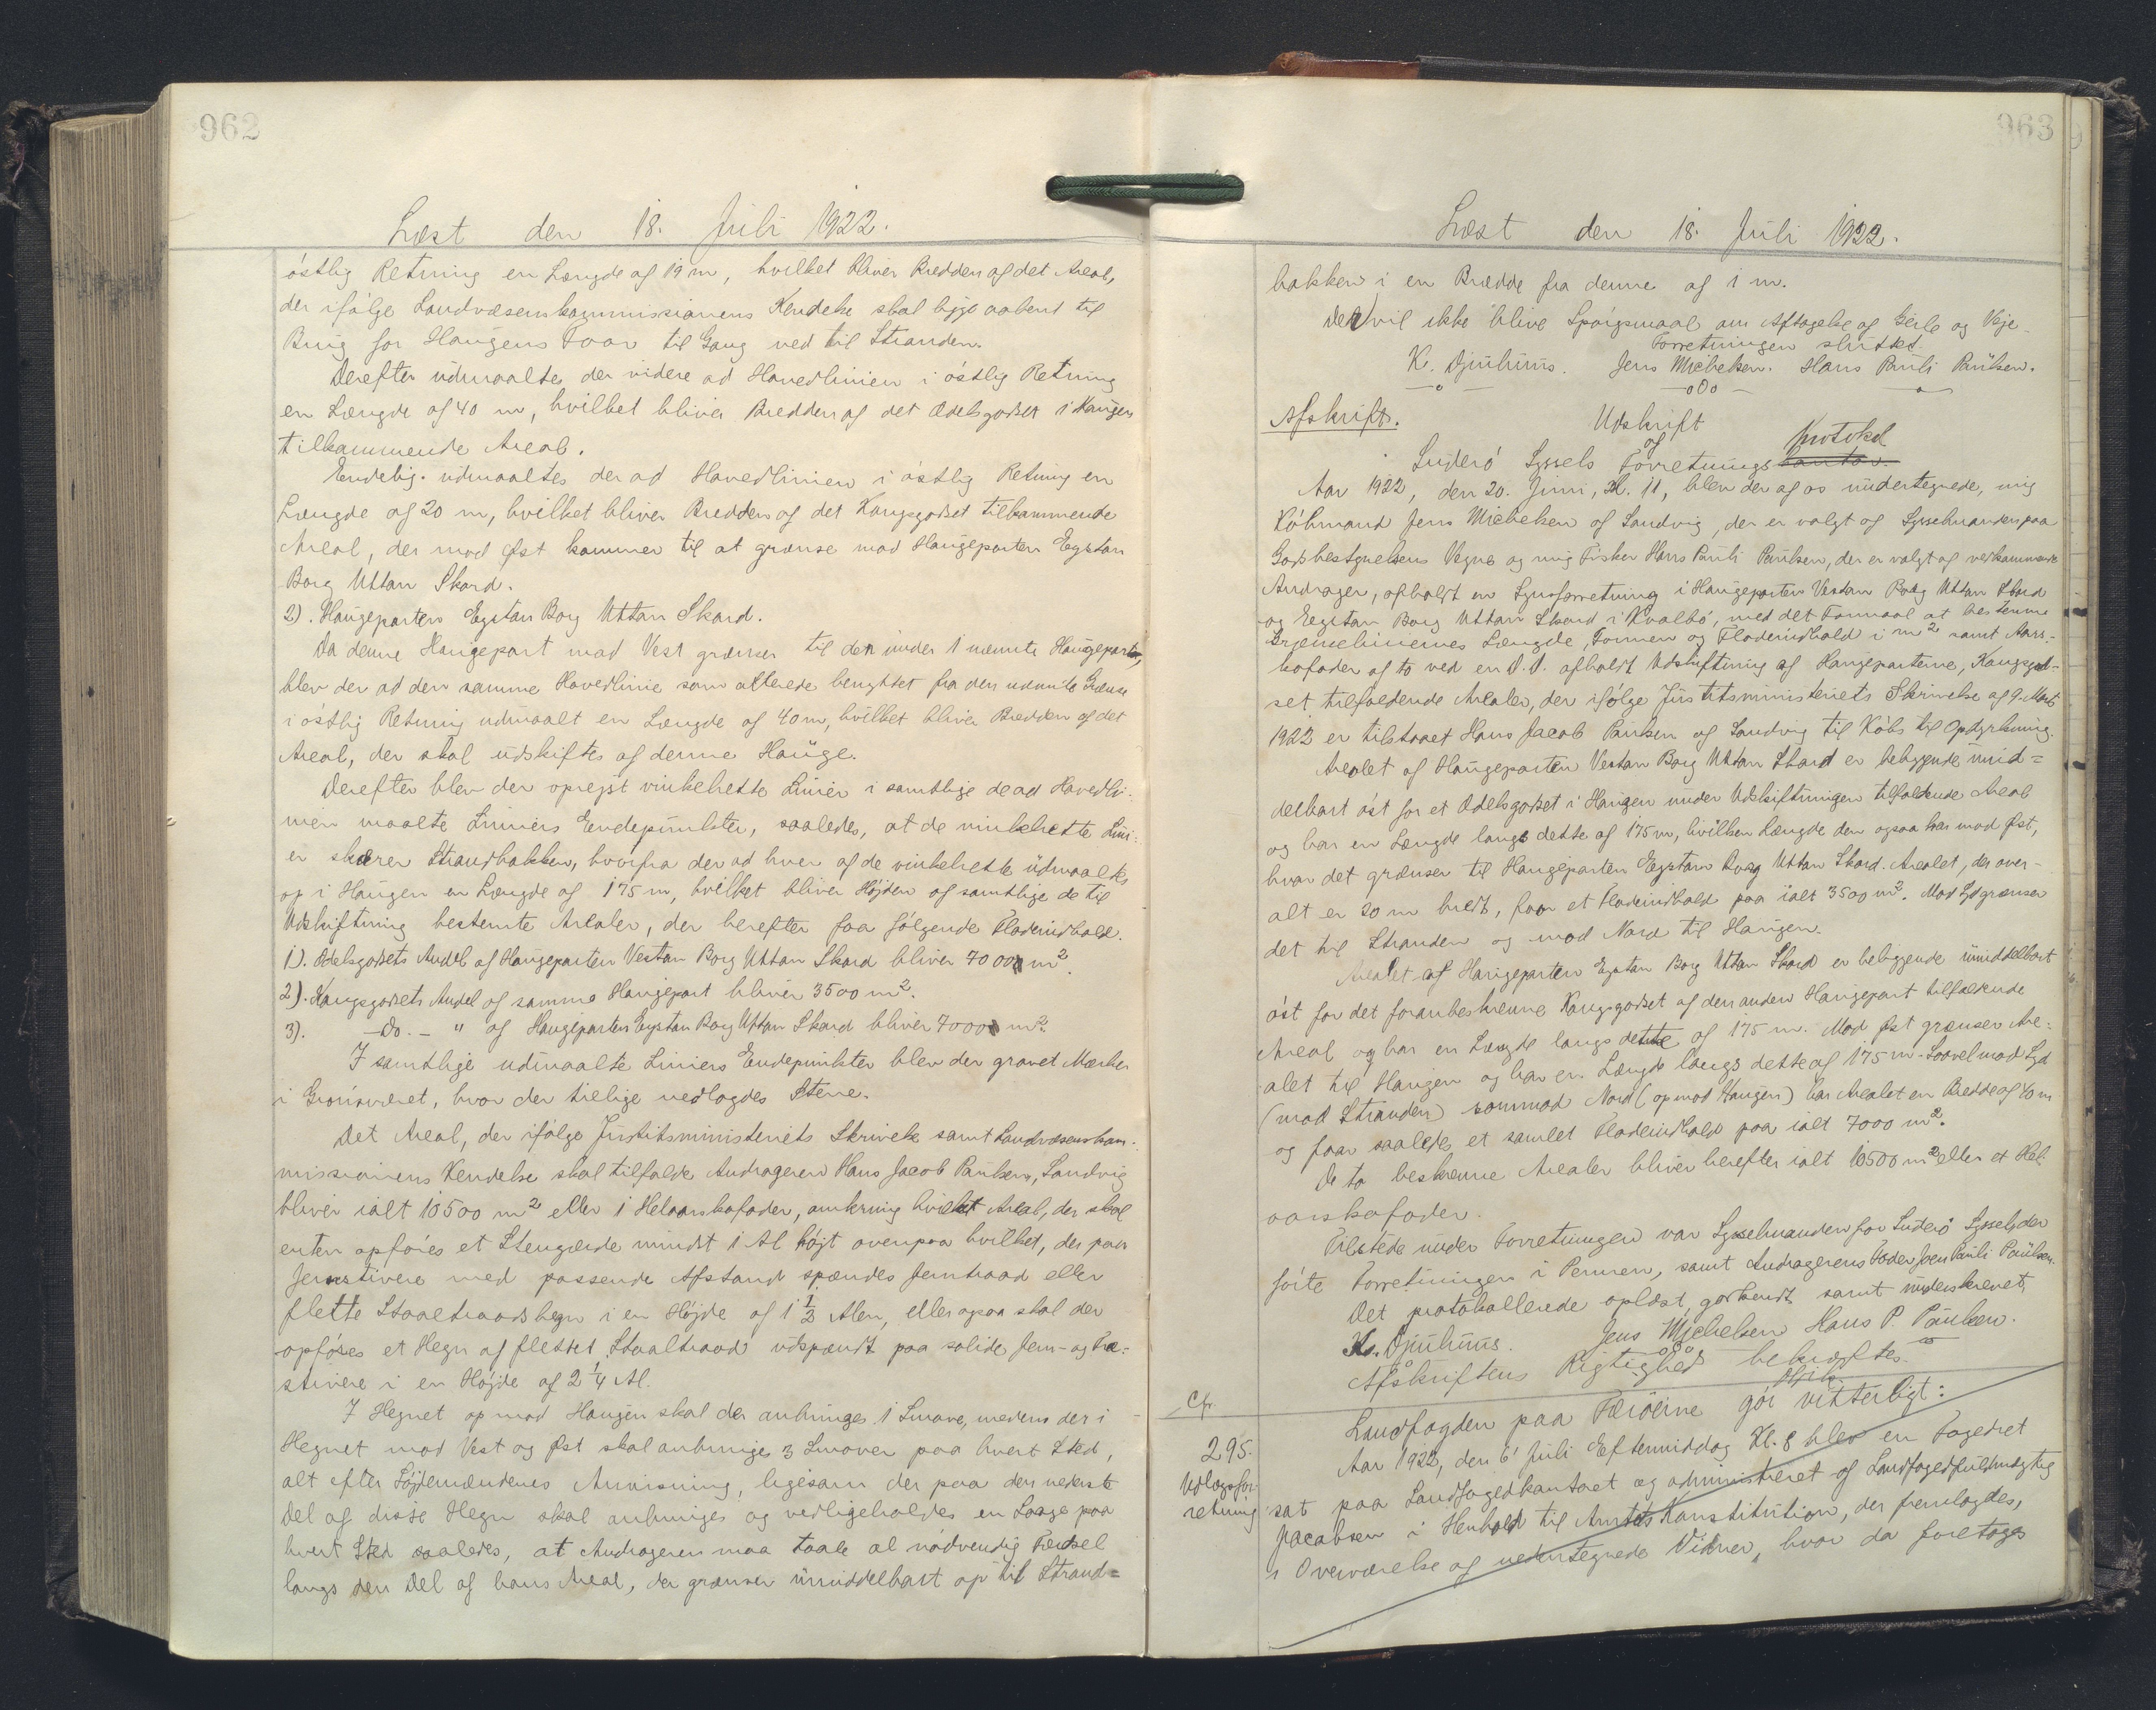 962
Læst den 18. Juli 1922.
östlig Retning en Længde af 19 m, hvilket bliver Bredden af det Areal,
der ifölge Landvæsenskommissionens Kendelse skal ligge aabent til
Brug for Haugens Faar til Gang ned til Stranden.
Derefter udmaaltes der videre ad Hovedlinien i östlig Retning
en Længde af 40 m, hvilket bliver Bredden af det Odelsgodset i Haugen
tilkommende Areal.
Endelig udmaaltes der ad Hovedlinien i östlig Retning en
Længde af 20 m, hvilket bliver Bredden af det Kongsgodset tilkommende
Areal, der mod Øst kommer til at grænse mod Haugeparten Eystan
Borg Uttan Skard.
2). Haugeparten Eystan Borg Uttan Skard.
Da denne Haugepart mod Vest grænser til den under 1 nævnte Haugepart,
blev der ad den samme Hovedlinie som allerede benyttet fra den nævnte Grænse
i östlig Retning udmaalt en Længde af 40 m, hvilket bliver Bredden af det
Areal, der skal udskiftes af denne Hauge.
Derefter blev der oprejst vinkelrette Linier i samtlige de ad Hovedli-
nien maalte Liniers Endepunkter, saaledes, at de vinkelrette Lini-
er skærer Strandbakken, hvorfra der ad hver af de vinkelrette udmaaltes
op i Haugen en Længde af 175 m, hvilket bliver Höjden af samtlige de til
Udskiftning bestemte Arealer, der herefter faa fölgende Fladeindhold.
1). Odelsgodsets Andel af Haugeparten Vestan Borg Uttan Skard bliver 7000 m².
2). Kongsgodsets Andel af samme Haugepart bliver 3500 m².
3). -Do.- " af Haugeparten Eystan Borg Uttan Skard bliver 7000 m².
I samtlige udmaalte Liniers Endepunkter blev der gravet Mærker
i Grönsværet, hvor der tillige nedlagdes Stene.
Det Areal, der ifölge Justitsministeriets Skrivelse samt Landvæsenskom-
missionens Kendelse skal tilfalde Andrageren Hans Jacob Paulsen, Sandvig
bliver ialt 10500 m² eller 1 Helaarskofoder, omkring hvilket Areal, der skal
enten opföres et Stengærde mindst 1 Al höjt ovenpaa hvilket, der paa
Jernstivere med passende Afstand spændes Jerntraad eller
flette Staaltraadshegn i en Höjde af 1 1/2 Alen, eller ogsaa skal der
opföres et Hegn af flettet Staaltraad udspændt paa solide Jern- og Træ-
stivere i en Höjde af 2 1/4 Al.
I Hegnet op mod Haugen skal der anbringes 1 Smove, medens der i
Hegnet mod Vest og Øst skal anbringes 3 Smover paa hvert Sted,
alt efter Söjdemændenes Anvisning, ligesom der paa den nederste
Del af disse Hegn skal anbringes og vedligeholdes en Laage paa
hvert Sted saaledes, at Andrageren maa taale al nödvendig Færdsel
langs den Del af hans Areal, der grænser umiddelbart op til Strand=
963
Læst den 18. Juli 1922.
bakken i en Bredde fra denne af 1 m.
Der vil ikke blive Spörgsmaal om Aftagelse af Geile og Veje.
Forretningen sluttet.
K. Djuhuus. Jens Michelsen. Hans Pauli Paulsen.
-o- -oOo- -o-
Afskrift. Udskrift
af Protokol
Suderö Syssels Forretnings kontor.
Aar 1922, den 20. Juni, Kl. 11, blev der af os undertegnede, mig
Köbmand Jens Michelsen af Sandvig, der er valgt af Sysselmanden paa
Godsbestyrelsens Vegne og mig Fisker Hans Pauli Paulsen, der er valgt af vedkommende
Andrager, afholdt en Synsforretning i Haugeparten Vestan Borg Uttan Skard
og Eystan Borg Uttan Skard i Kvalbö, med det Formaal at bestemme
Grænseliniernes Længde, Formen og Fladeindhold i m² samt Aars-
kofoder af to ved en D.D. afholdt Udskiftning af Haugeparterne, Kongsgod-
set tilfaldende Arealer, der ifölge Justitsministeriets Skrivelse af 9. Marts
1922 er tilstaaet Hans Jacob Paulsen af Sandvig til Köbs til Opdyrkning.
Arealet af Haugeparten Vestan Borg Uttan Skard er beliggende umid=
delbart öst for et Odelsgodset i Haugen under Udskiftningen tilfaldende Areal
og har en Længde langs dette af 175 m, hvilken Længde den ogsaa har mod Øst,
hvor det grænser til Haugeparten Eystan Borg Uttan Skard. Arealet, der over-
alt er 20 m bredt, faar et Fladeindhold paa ialt 3500 m². Mod Syd grænser
det til Stranden og mod Nord til Haugen.
Arealet af Haugeparten Eystan Borg Uttan Skard er beliggende umiddelbart
öst for det foranbeskrevne Kongsgodset af den anden Haugepart tilfaldende
Areal og har en Længde langs dette af 175 m. Mod Øst grænser Are-
alet til Haugen og har en Længde langs dette af 175 m. Saavel mod Syd
(mod Stranden) som mod Nord (op mod Haugen) har Arealet en Bredde af 40 m
og faar saaledes et samlet Fladeindhold paa ialt 7000 m².
De to beskrevne Arealer bliver herefter ialt 10500 m² eller et Hel-
aarskofoder.
Tilstede under Forretningen var Sysselmanden for Suderö Syssel, der
förte Forretningen i Pennen, samt Andragerens Fader Joen Pauli Paulsen.
Det protokollerede oplæst, godkendt samt underskrevet.
K. Djuhuus. Jens Michelsen Hans P. Paulsen.
-oOo-
Afskriftens Rigtighed bekræftes.
Cfr.
Landfogden paa Færöerne gör vitterligt:
295.
Udlægsfor-
retning
Aar 1922, den 6 Juli Eftermiddag Kl. 8 blev en Fogedret
sat paa Landfogedkontoret og administreret af Landfogedfuldmægtig
Jacobsen i Henhold til Amtets Konstitution, der fremlagdes,
i Overværelse af undertegnede Vidner, hvor da foretoges